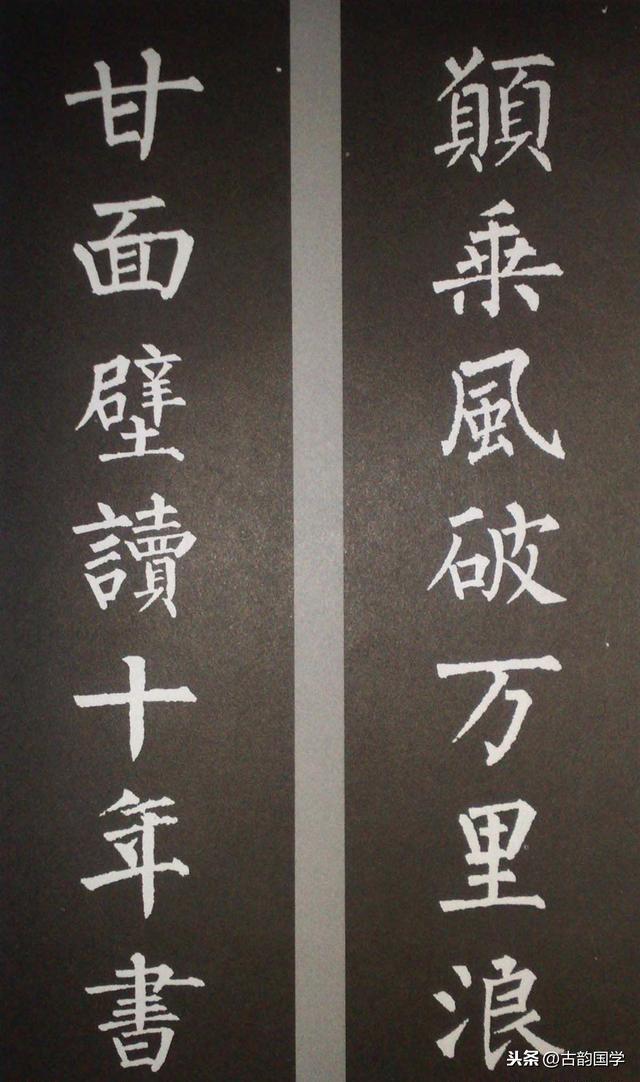 願乘風破万里浪
甘面壁讀十年書
头条 @古韵国学